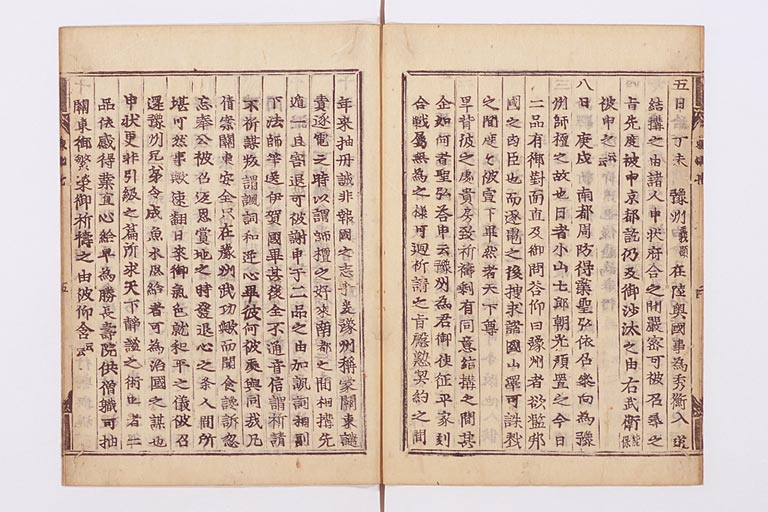 五日 丁未 豫州義顕在陸奥國事為秀衡入道
結搆之由諸人申状府合之間嚴密可被召尋之
旨先度被申京都訖仍及御沙汰之由右武衛能保
被申之云云
八日 庚戌 南都周防得業聖弘依召參向為豫
州師檀之故也日者小山七郎朝光預置之今日
二品有御對面直及御問答仰曰豫州者欲濫邦
國之凶臣也而逐電之後搜求諸國山澤可誅戮
之間度々被宣下畢然者天下尊
早背彼之處貴房致祈禱剰有同意結搆之聞其
企如何者聖弘答申云豫州為君御使征平家刻
合戰屬無為之樣可廻祈請之旨慇懃契約之間
年來抽丹誠非報國之志哉爰豫州稱蒙關東譴
責逐電之時以謂師檀之好來南都之間相搆先
遁一旦害退可被謝申于二品之由加諷詞相副
下法師等送伊賀國畢其後全不通音信謂祈請
不祈謀叛謂諷詞和逆心畢彼何被處與同哉凡
倩案關東安全只在豫州武功歟而聞食讒訴忽
忘奉公被召返恩賞地之時發逆心之条人間所
堪可然事歟速翻日來御氣色就和平之儀被召
還豫州兄弟令成魚水思給者可為治國之謀也
申状更非引級之篇所求天下靜謐之術也者二
品依感得業直心給早為勝長壽院供僧職可抽
關東御繁榮御祈禱之由被仰含云云
五